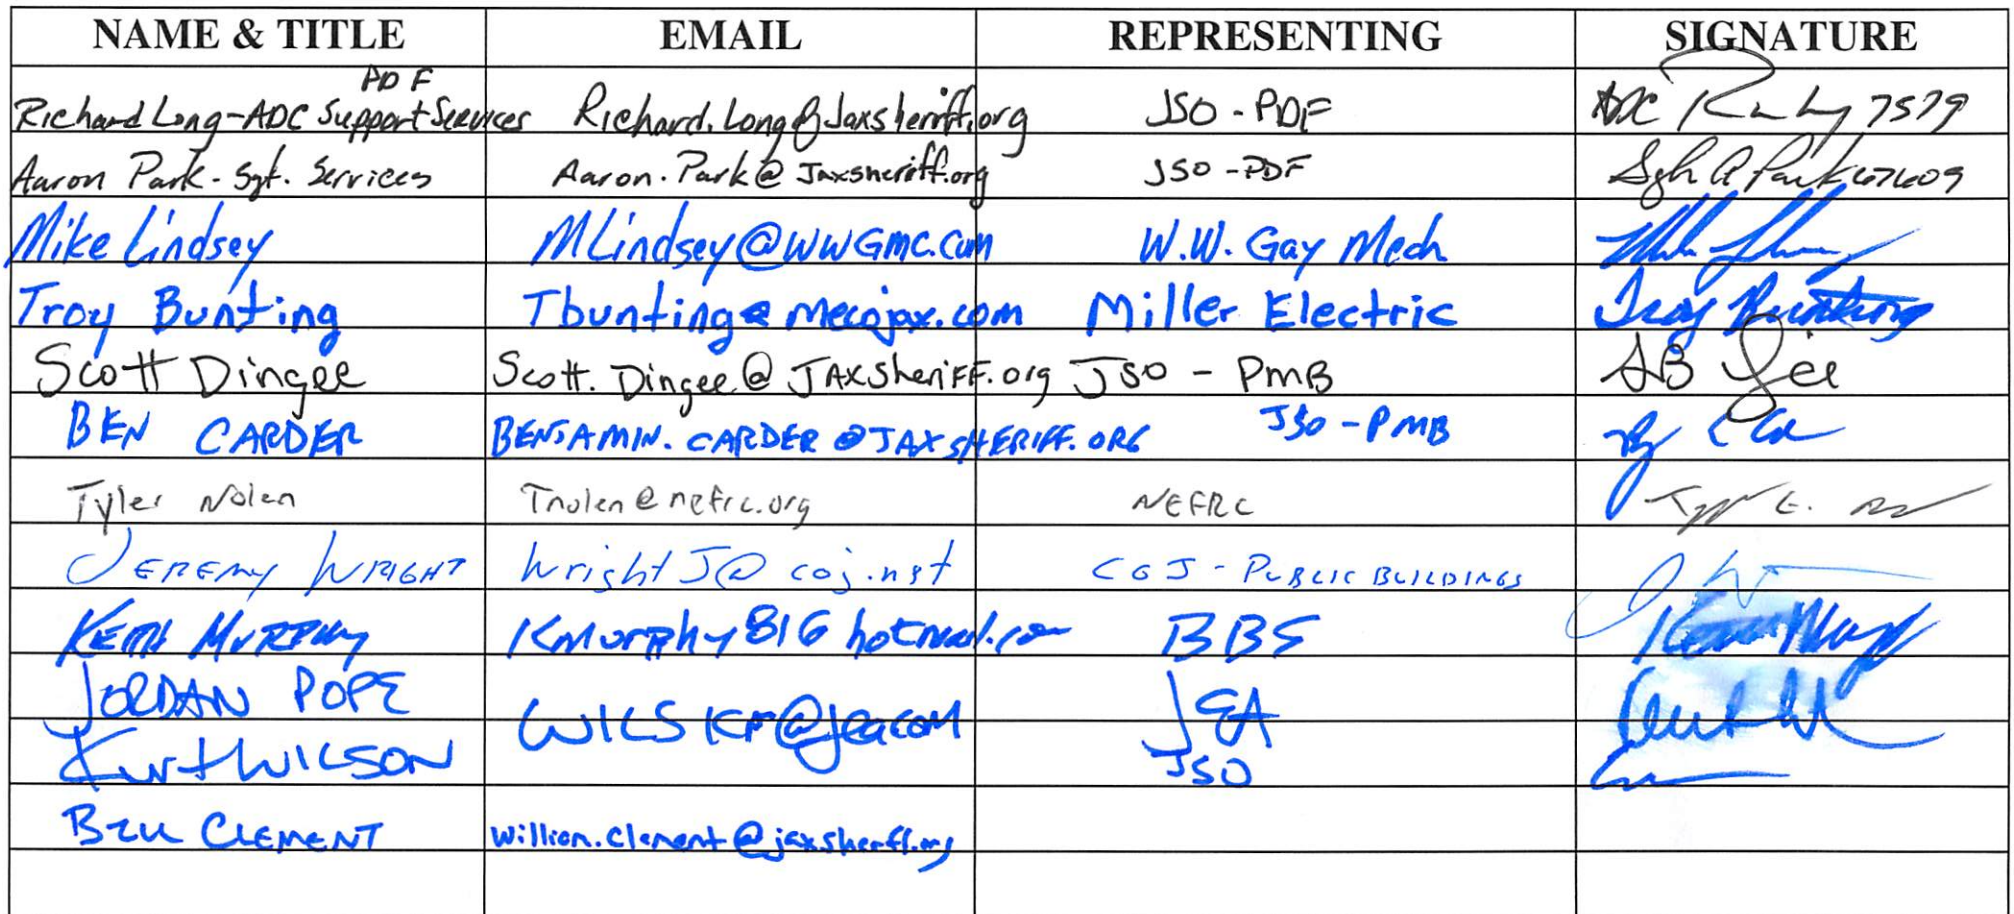 NAME & TITLE EMAIL REPRESENTING SIGNATURE
PDF
Richard Long-ADC Support Services Richard.Long@Jaxsheriff.org JSO - PDF ADC 7579
Aaron Park - Sgt. Services Aaron.Park@Jaxsheriff.org JSO - PDF Sgt A Park
Mike Lindsey MLindsey@WWGmc.com W.W. Gay Mech
Troy Bunting Tbunting@mecojax.com Miller Electric Troy Bunting
Scott Dingee Scott.Dingee@JAXSheriFF.org JSO - PMB
BEN CARDER BENJAMIN.CARDER@JAXSHERIFF.ORG JSO - PMB
Tyler Nolen Tnolen@nefrc.org NEFRC
JEREMY WRIGHT WrightJ@coj.net COJ - PUBLIC BUILDINGS
KEITH MURPHY Kmurphy816 hotmail.com BBS
JORDAN POPE JEA
Kurt WILSON WILSKM@jea.com JSO
BILL CLEMENT william.clement@jaxsheriff.org